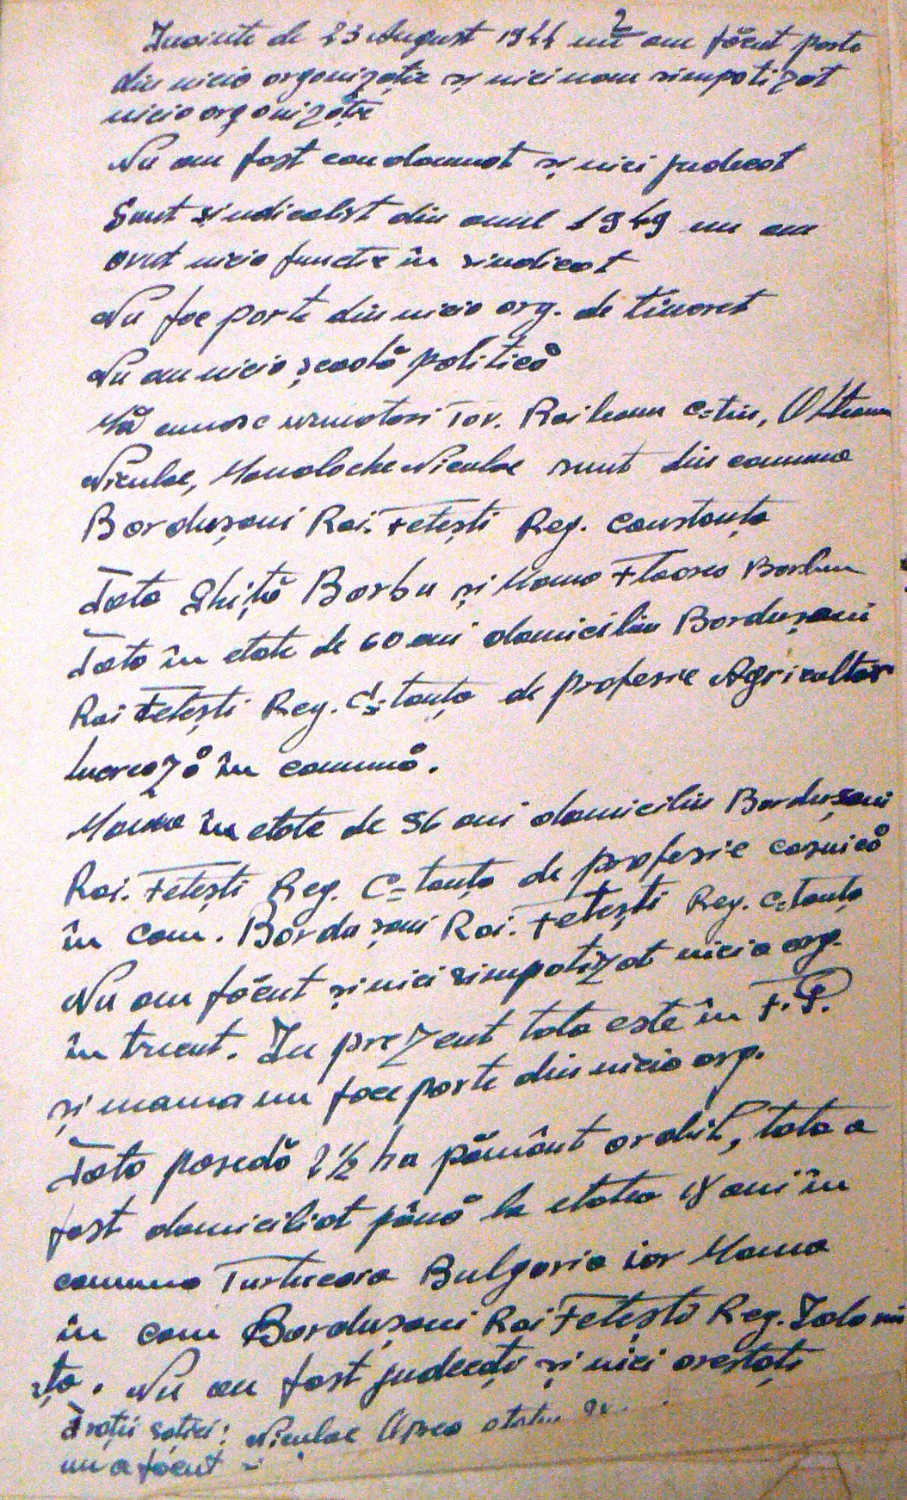 2
Inainte de 23 August 1944 nu am făcut parte
din nicio organizație și nici nam simpatizat
nicio organizație
Nu am fost condamnat și nici judecat
Sunt sindicalist din anul 1949 nu am
avut nicio funcție în sindicat
Nu fac parte din nicio org. de tineret
Nu am nicio școală politică
Mă cunosc urmatori Tov. Raileanu C-tin,
Niculae, Manolache Niculae sunt din comuna
Bordușani Rai. Fetești Reg. Constanța
Tata Ghiță Barbu și Mama Floarea Barbu
Tata în etate de 60 ani domiciliu Bordușani
Rai Fetești Reg. C-tanța de profesie Agricultor
lucrează în comună.
Mama în etate de 56 ani domiciliu Bordușani
Rai. Fetești Reg. C-tanța de profesie casnică
în com. Bordușani Rai. Fetești Reg. C-tanța
Nu am făcut și nici simpatizat nicio org.
în trecut. In prezent tata este în F.P.
și mama nu face parte din nicio org.
Tata posedă 2½ ha pământ arabil, tata a
fost domiciliat până la etatea 18 ani în
comuna Turtucaia Bulgaria iar Mama
în com Bordușani Rai Fetești Reg. Ialomi
ța. Nu au fost judecați și nici arestați
Frații soției: Niculae Oprea
nu a făcut